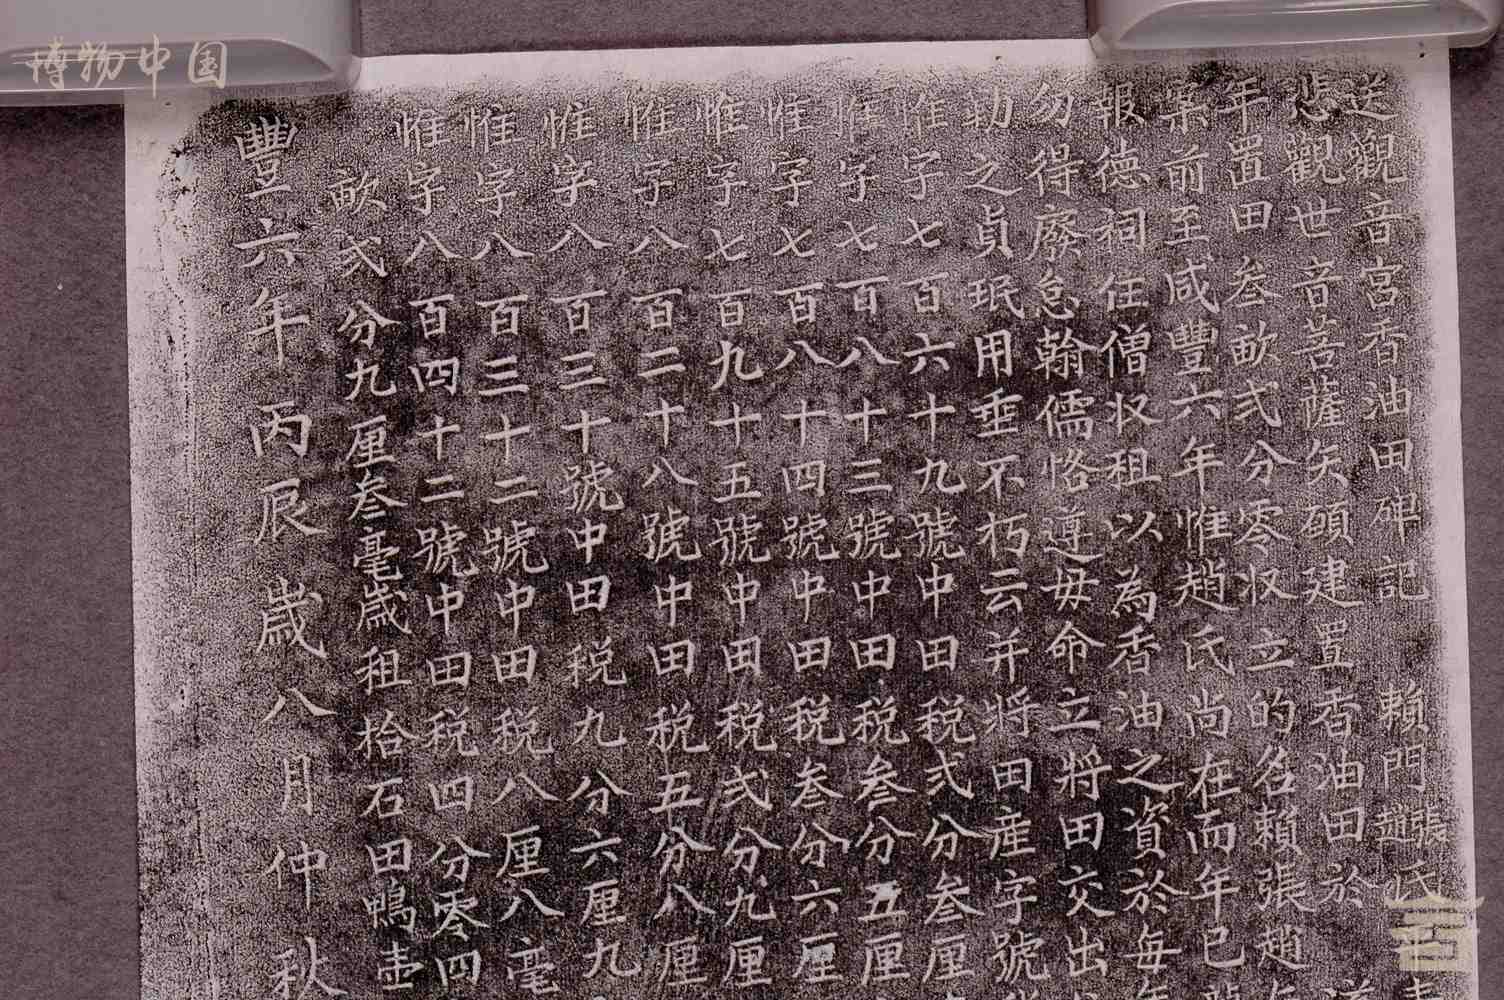 送觀音宮香油田碑記 賴門張趙氏
悲觀世音菩薩矢碩建置香油田於
年置田叁畝弍分零収立的名賴張趙
案前至咸豐六年惟趙氏尚在而年已
報德祠住僧収租以為香油之資於每年
勿得廢怠翰儒恪遵毋命立將田交出
劫之貞珉用垂不朽云并將田産字號
惟字七百六十九號中田税弍分叁厘
惟字七百八十三號中田税叁分五厘
惟字七百八十四號中田税叁分六厘
惟字七百九十五號中田税弍分九厘
惟字八百二十八號中田税五分八厘
惟字八百三十號中田税九分六厘九
惟字八百三十二號中田税八厘八毫
惟字八百四十二號中田税四分零四
畝弍分九厘叁毫歲租拾石田鴨壹
豐六年丙辰歲八月仲秋
博物中国